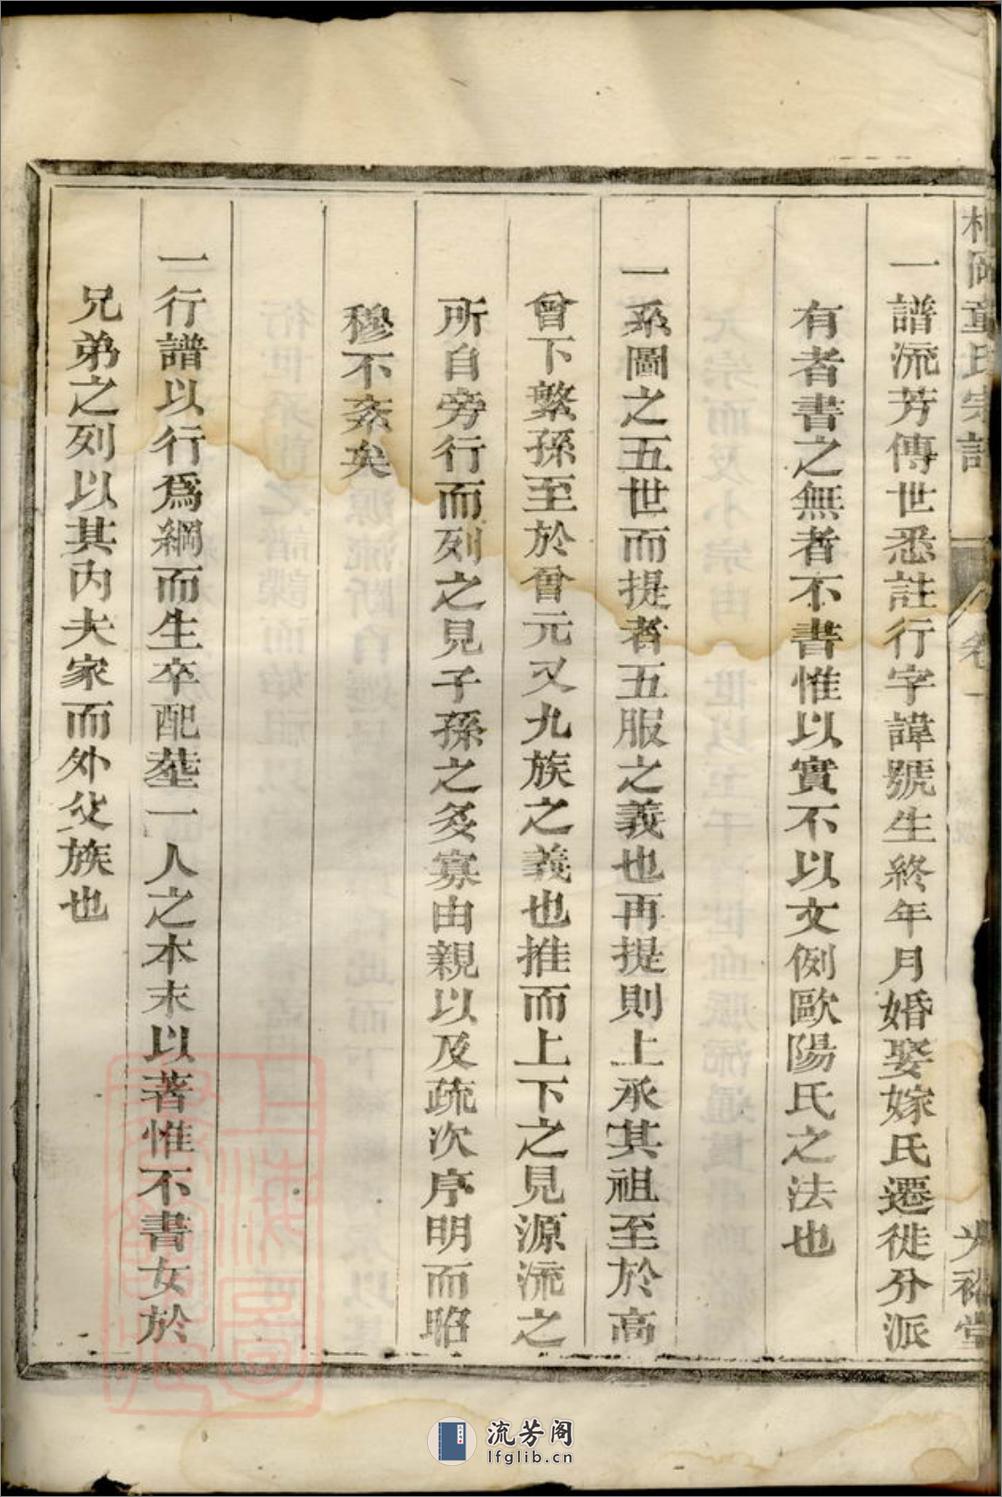 童氏宗譜
卷一
裕堂
一譜流芳傳世悉註行字諱號生終年月婚娶嫁氏遷徙分派
有者書之無者不書惟以實不以文例歐陽氏之法也
一系圖之五世而提者五服之義也再提則上承其祖至於高
曾下繁孫至於曾元又九族之義也推而上下之見源流之
所自旁行而列之見子孫之多寡由親以及疏次序明而昭
穆不紊矣
一行譜以行爲綱而生卒配塟一人之本末以著惟不書女於
兄弟之列以其內夫家而外父族也
上海圖書館
流芳阁
lfglib.cn